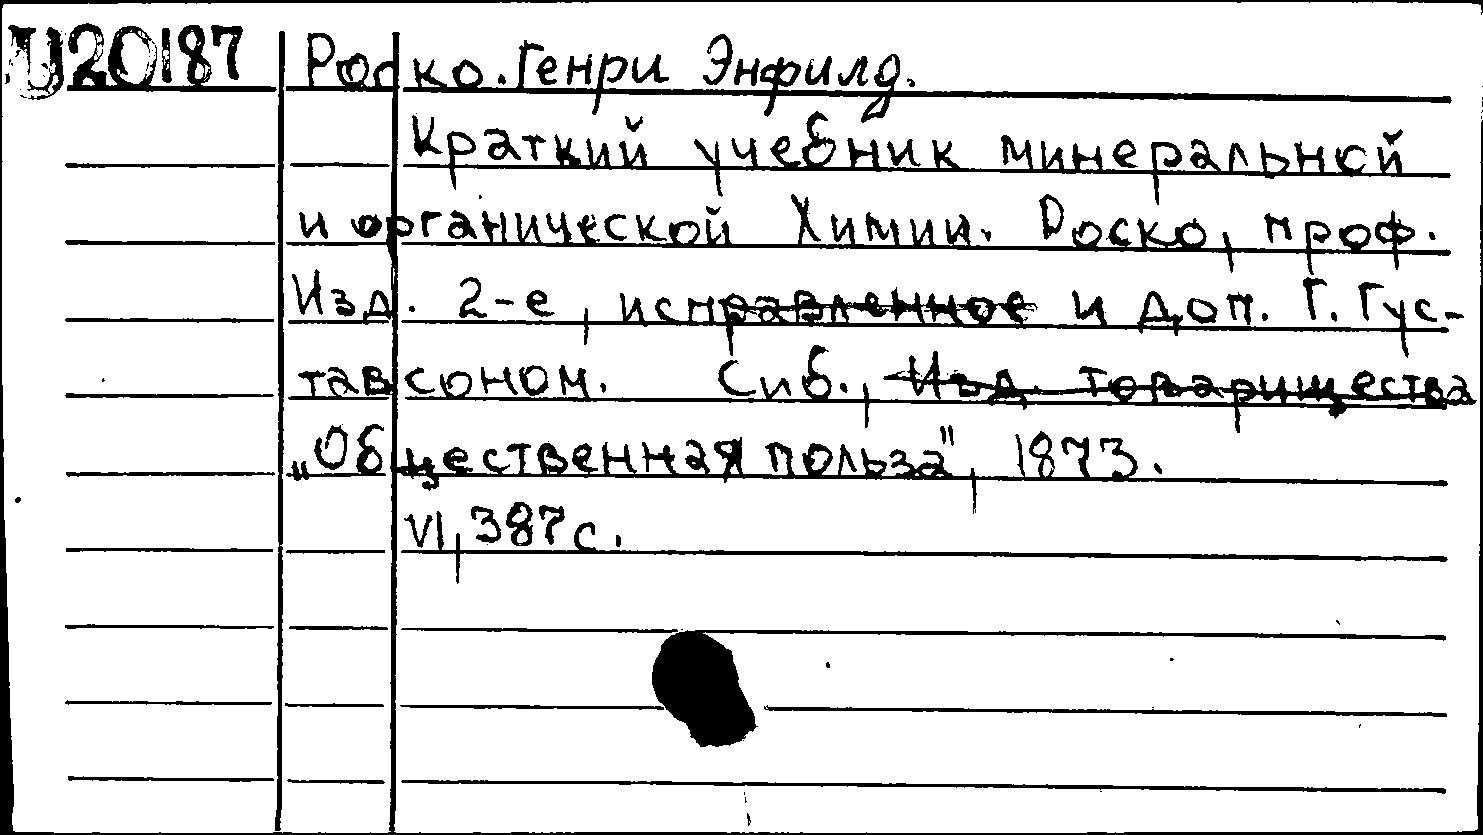 U20187
Роско. Генри Энфилд.
Краткий учебник минеральной
и органической Химии. Роско, проф.
Изд. 2-е, исправленное и доп. Г. Гус-
тавсоном. Спб., Изд. товарищества
„Общественная польза", 1873.
VI, 387 с.